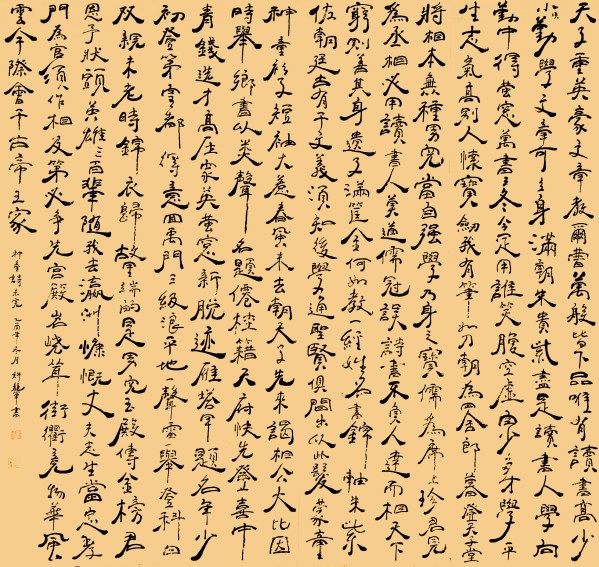 天子重英豪文章教爾曹萬般皆下品唯有讀書高少
小須勤學文章可立身滿朝朱貴紫盡是讀書人學向
勤中得螢窗萬書三冬今足用誰笑腹空虛自少多才學平
生志氣高別人懷寶劍我有筆如刀朝為田舍郎暮登天子堂
將相本無種男兒當自強學乃身之寶儒為席上珍君見
為丞相必用讀書人莫道儒冠誤詩書不負人達而相天下
窮則善其身遺子滿籯金何如教一經姓名書錦軸朱紫
佐朝廷古有千文義須知後學通聖賢俱間出以此發蒙童
神童衫子短袖大惹春風未去朝天子先來謁相公大比因
時舉鄉書以類聲名題僊桂籍天府快先登喜中
青錢選才高壓眾英螢窗新脫迹雁塔早題名年少
初登第皇都得意回禹門三級浪平地一聲雷一舉登科日
双親未老時錦衣歸故里端的是男兒玉殿傳金榜君
恩予狀頭英雄三百輩隨我去瀛洲慷慨丈夫志生當忠孝
門為官須作相及第必爭先宮殿岧嶢聳街衢竟物華風
雲今際會千古帝王家
神童詩